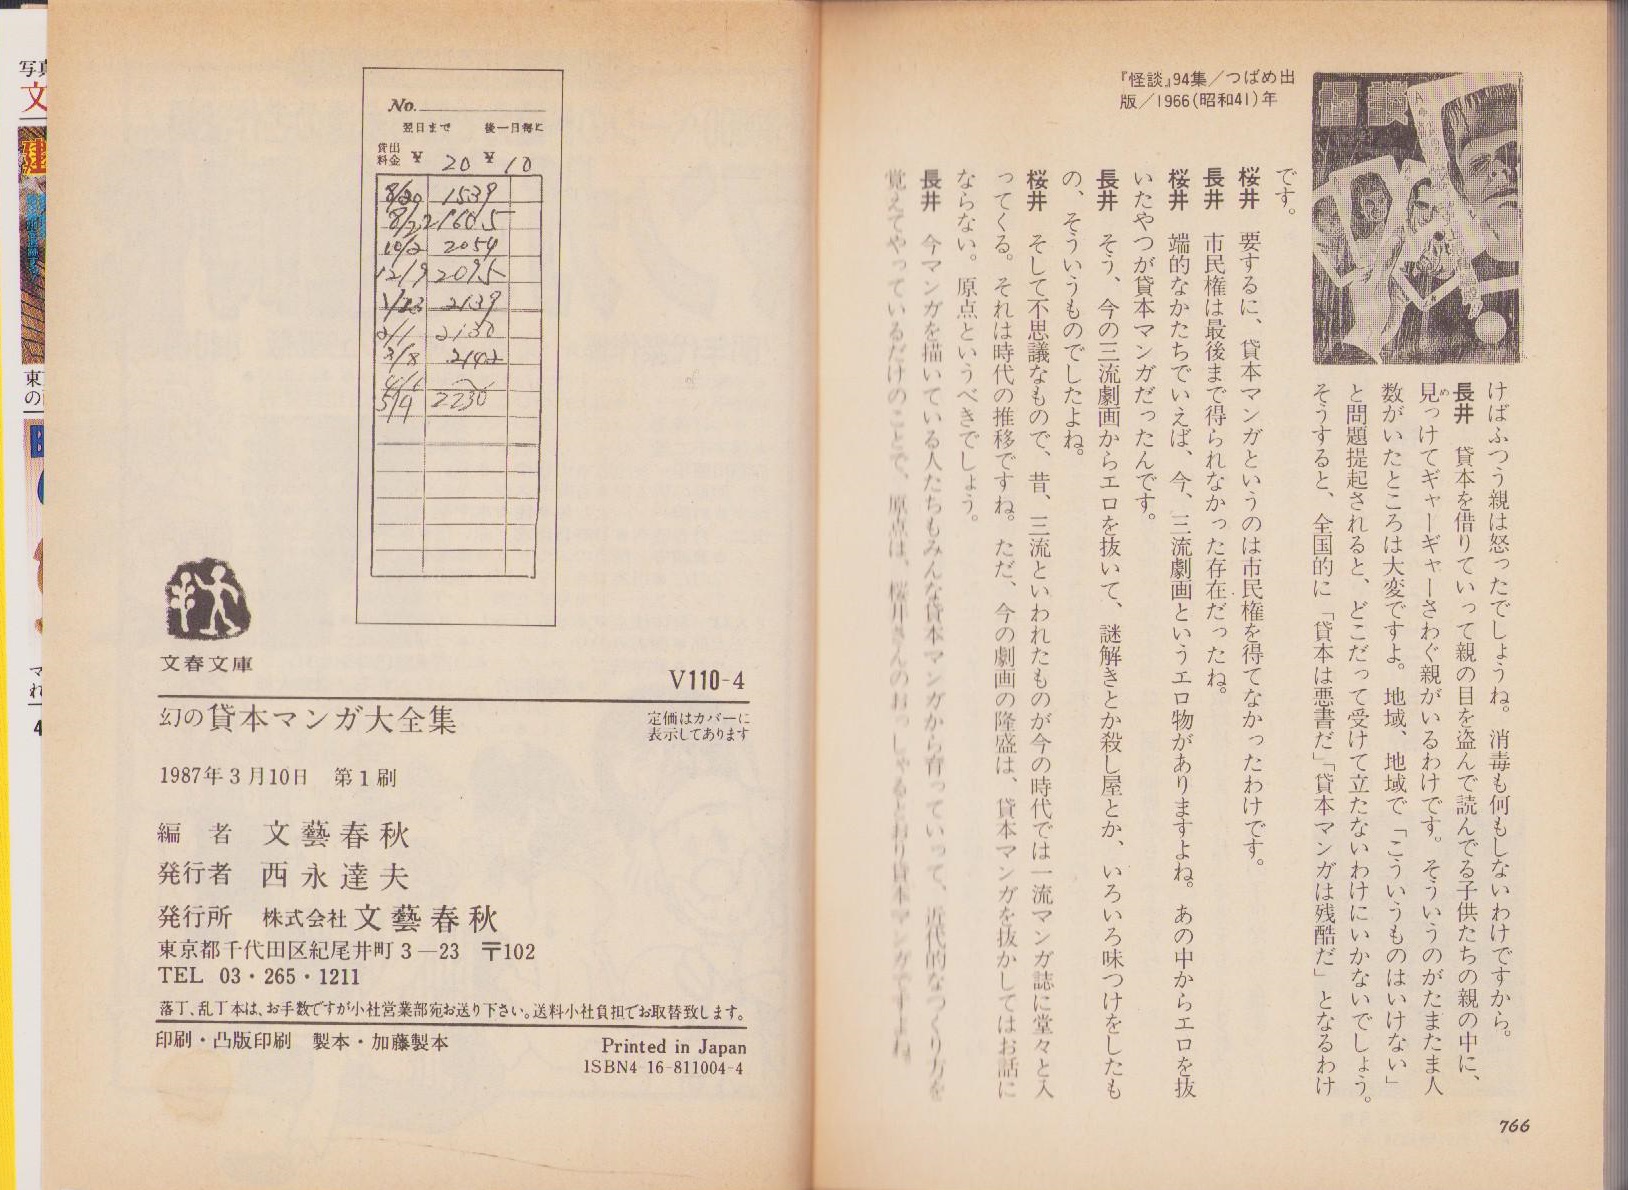 766
『怪談』94集／つばめ出
版／1966(昭和41)年
けばふつう親は怒ったでしょうね。消毒も何もしないわけですから。
長井　貸本を借りていって親の目を盗んで読んでる子供たちの親の中に、
見っけてギャーギャーさわぐ親がいるわけです。そういうのがたまたま人
め
数がいたところは大変ですよ。地域、地域で「こういうものはいけない」
と問題提起されると、どこだって受けて立たないわけにいかないでしょう。
そうすると、全国的に「貸本は悪書だ」「貸本マンガは残酷だ」となるわけ
です。
桜井　要するに、貸本マンガというのは市民権を得てなかったわけです。
長井　市民権は最後まで得られなかった存在だったね。
桜井　端的なかたちでいえば、今、三流劇画というエロ物がありますよね。あの中からエロを抜
いたやつが貸本マンガだったんです。
長井　そう、今の三流劇画からエロを抜いて、謎解きとか殺し屋とか、いろいろ味つけをしたも
の、そういうものでしたよね。
桜井　そして不思議なもので、昔、三流といわれたものが今の時代では一流マンガ誌に堂々と入
ってくる。それは時代の推移ですね。ただ、今の劇画の隆盛は、貸本マンガを抜かしてはお話に
ならない。原点というべきでしょう。
長井　今マンガを描いている人たちもみんな貸本マンガから育っていって、近代的なつくり方を
覚えてやっているだけのことで、原点は、桜井さんのおっしゃるとおり貸本マンガですよね。
No.
翌日まで　後一日毎に
貸出
料金 ¥ 20 ¥ 10
8/20 1539
8/22 1605
10/2 2054
12/9 2095
1/23 2139
2/1 2130
3/8 2142
5/9 2230
文春文庫
V110-4
幻の貸本マンガ大全集
定価はカバーに
表示してあります
1987年3月10日　第1刷
編　者　文藝春秋
発行者　西永達夫
発行所　株式会社 文藝春秋
東京都千代田区紀尾井町3―23　〒102
TEL 03・265・1211
落丁、乱丁本は、お手数ですが小社営業部宛お送り下さい。送料小社負担でお取替致します。
印刷・凸版印刷　製本・加藤製本
Printed in Japan
ISBN4-16-811004-4